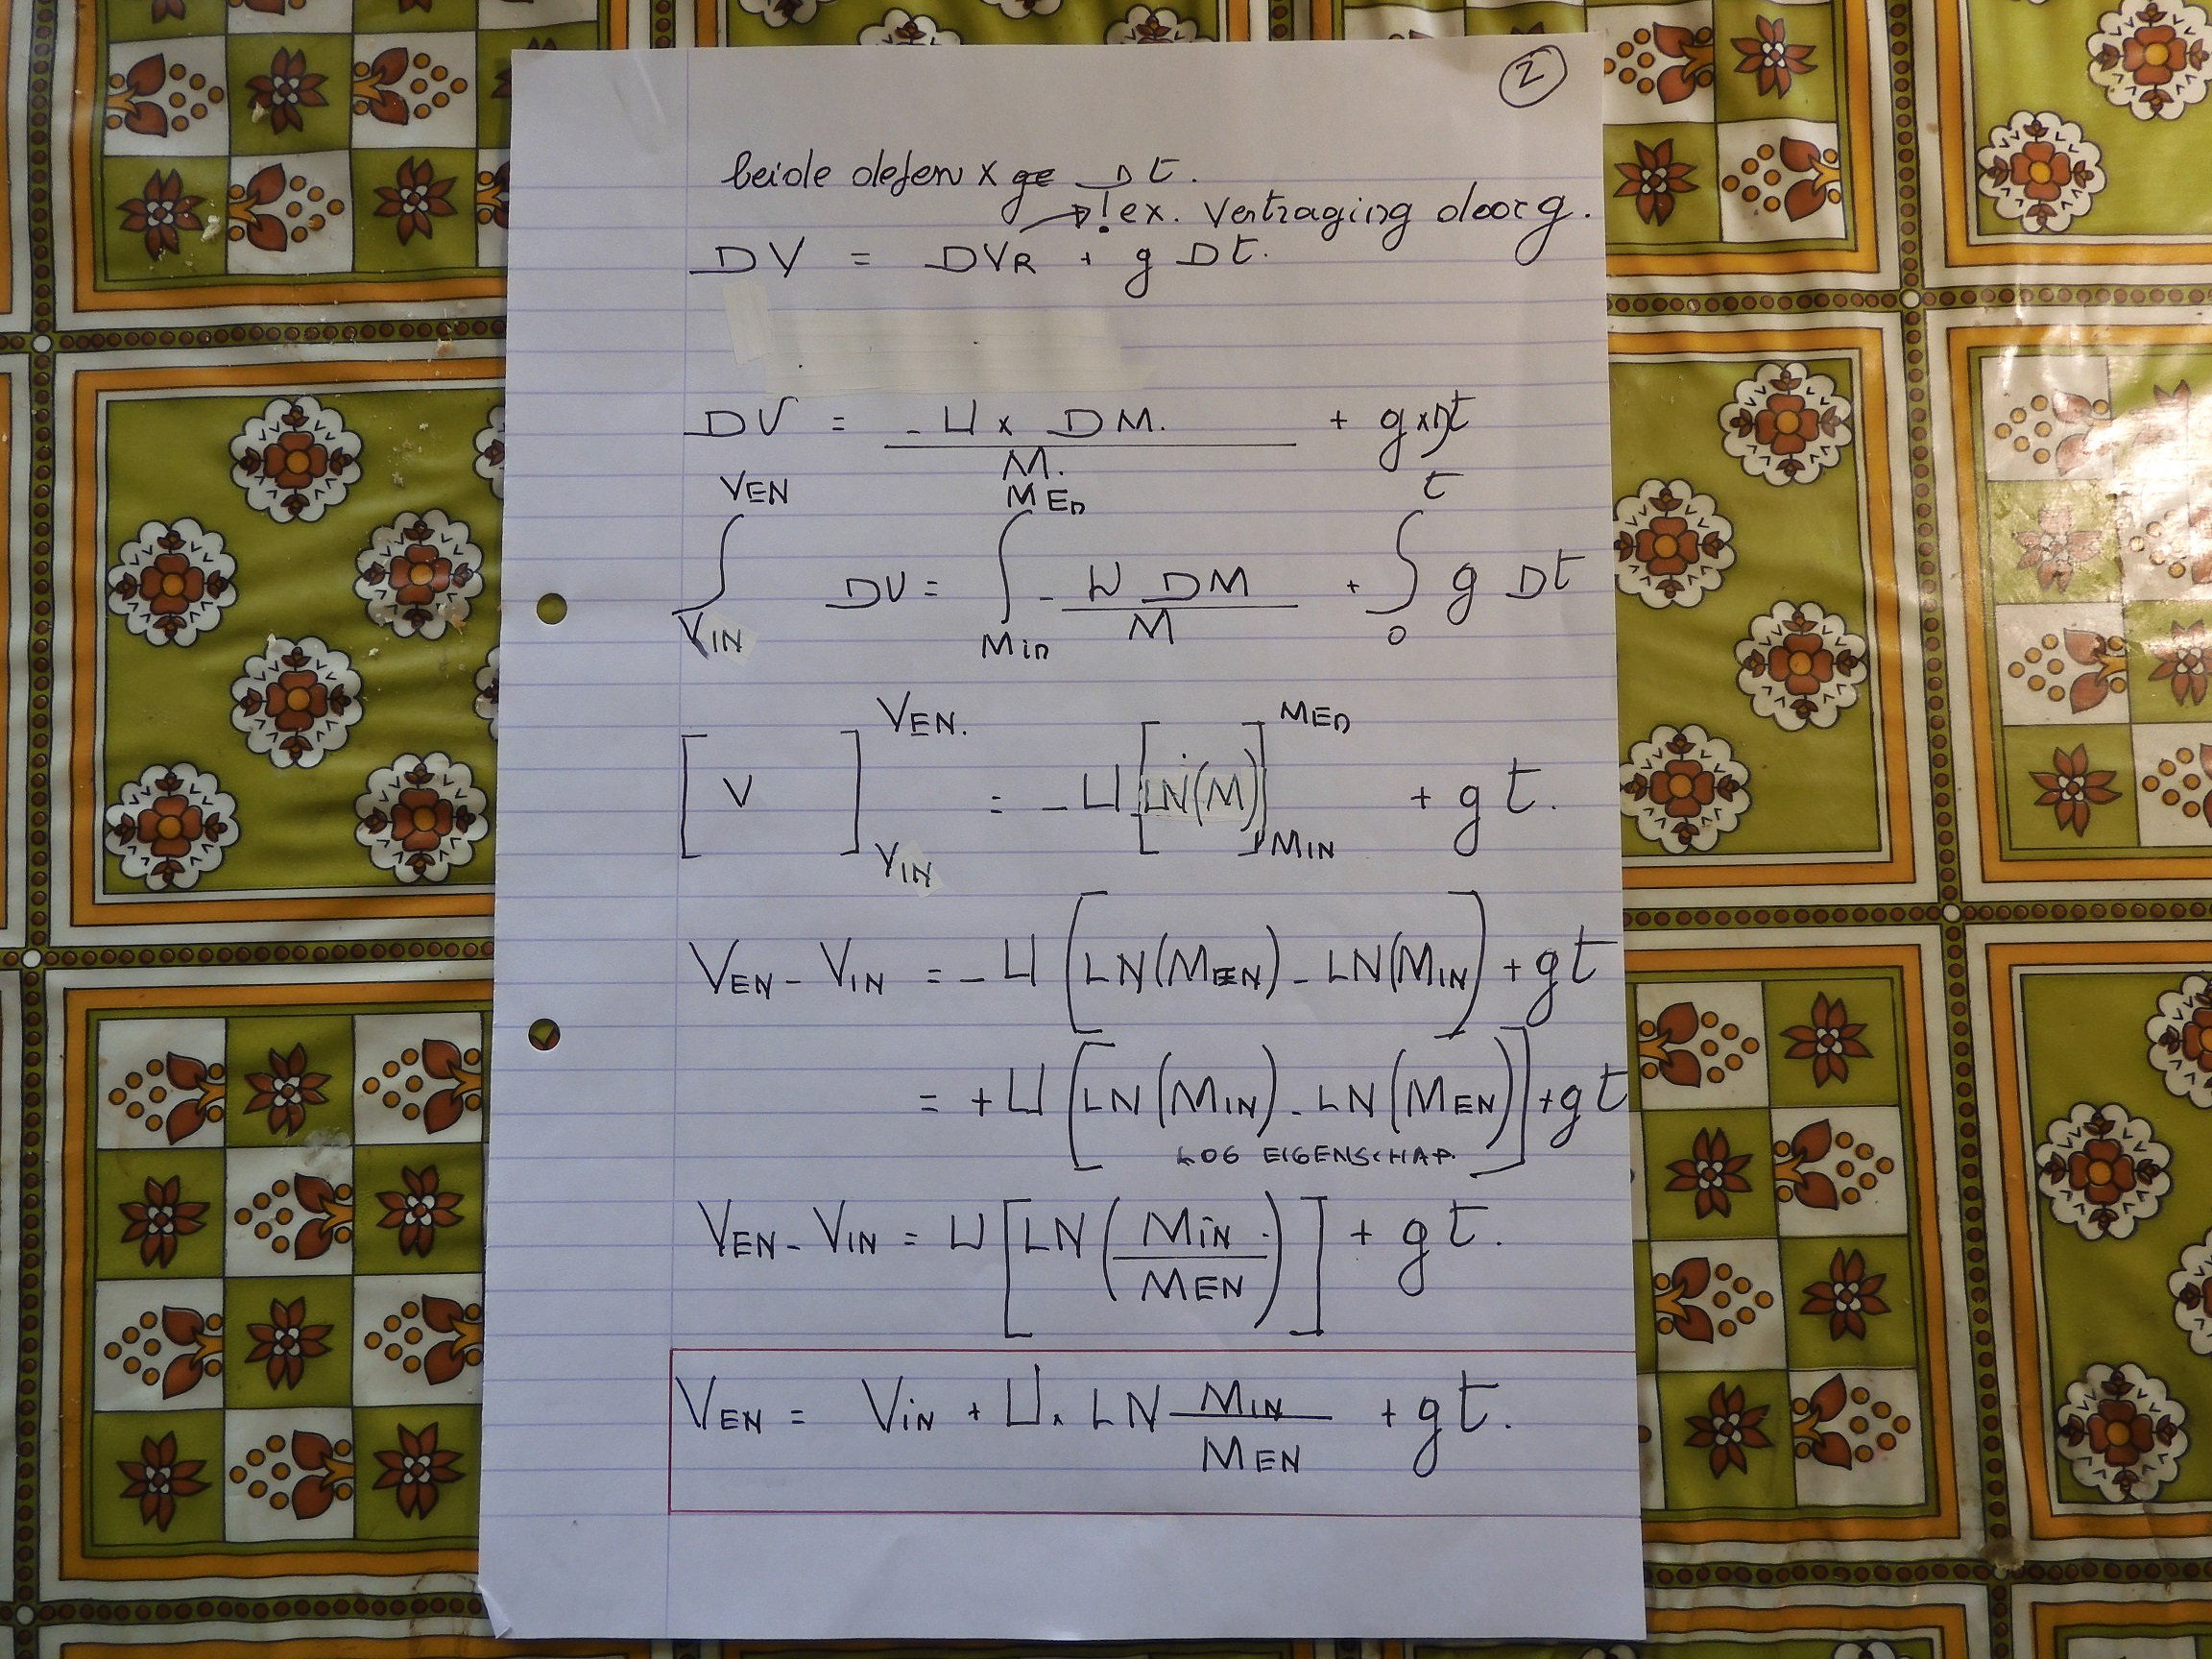 2
beide delen x ge Dt.
! ex. Vertraging door g.
DV = DVR + g Dt.
DV = - U x DM. / M. + g x Dt
∫ VEN VIN DV = ∫ MEn Min - U DM / M + ∫ t 0 g Dt
[ V ] VEN. VIN = - U [LN(M)] MEn MIN + g t.
VEN - VIN = - U [LN(MEN) - LN(MIN] + gt
= + U [LN(MIN) - LN(MEN)] + gt
LOG EIGENSCHAP.
VEN - VIN = U [LN (MiN / MEN)] + gt.
VEN = ViN + U x LN MIN / MEN + gt.